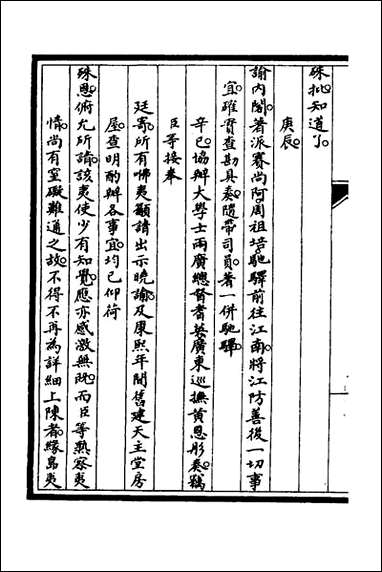 硃批。知道了。
庚辰。
諭內閣。著派賽尚阿。周祖培。馳驛前往江南。將江防善後一切事
宜。確實查勘具奏。隨帶司員。著一併馳驛。
辛巳。協辦大學士兩廣總督耆英。廣東巡撫黃恩彤奏。竊
臣等接奉
廷寄。所有咈夷籲請出示曉諭。及康熙年間舊建天主堂房
屋。查明酌辦各事宜。均已仰荷
硃恩。俯允所請。該夷使少有知覺。應亦感激無既。而臣等熟察夷
情。尚有窒礙難通之故。不得不再為詳細上陳者。緣島夷